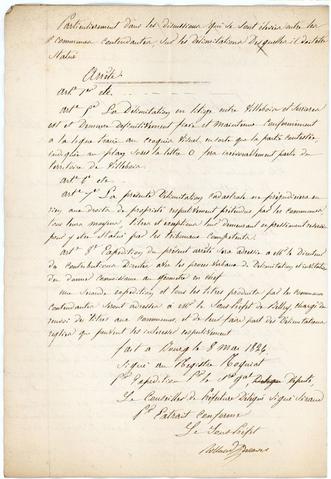 Particulièrement dans les discussions qui se sont élevées entre les
communes contendantes, sur les délimitations desquelles il doit être
Statué
Arrête
art. 1er etc.
art. 5e La Délimitation en litige entre Villebois et
est et demeure définitivement fixée et maintenue conformément
à la ligne tracée au croquis visuel, en sorte que la partie contestée
indiquée au plan sous la lettre O fera irrévocablement partie du
territoire de Villebois.
art. 6e etc.
art. 7e La présente Délimitation cadastrale ne préjudiciera en
rien aux droits de propriété respectivement prétendus par les communes
tous leurs moyens, titres et exceptions leur demeurant expressément réservés
pour y être statué par les tribunaux compétents.
art. 8e Expédition du présent arrêté sera adressée à Mr. le directeur
des contributions directes avec les procès verbaux de Délimitation et
du dernier commissaire au géomètre en chef
une Seconde expédition et tous les titres produits par les communes
contendantes seront adressés à Mr. le Sous Préfet de Belley, chargé du
renvoi de titres aux communes, et de leur faire part des Délimitations
qui peuvent les intéresser respectivement
fait à Bourg le 8 mai 1824
Signé au Registre Roguiat
Pr. Expédition Pr. le Sre. gal. Député
Le Conseiller de Préfecture Délégué Signé
Pr. Extrait Conforme
Le Sous Préfet